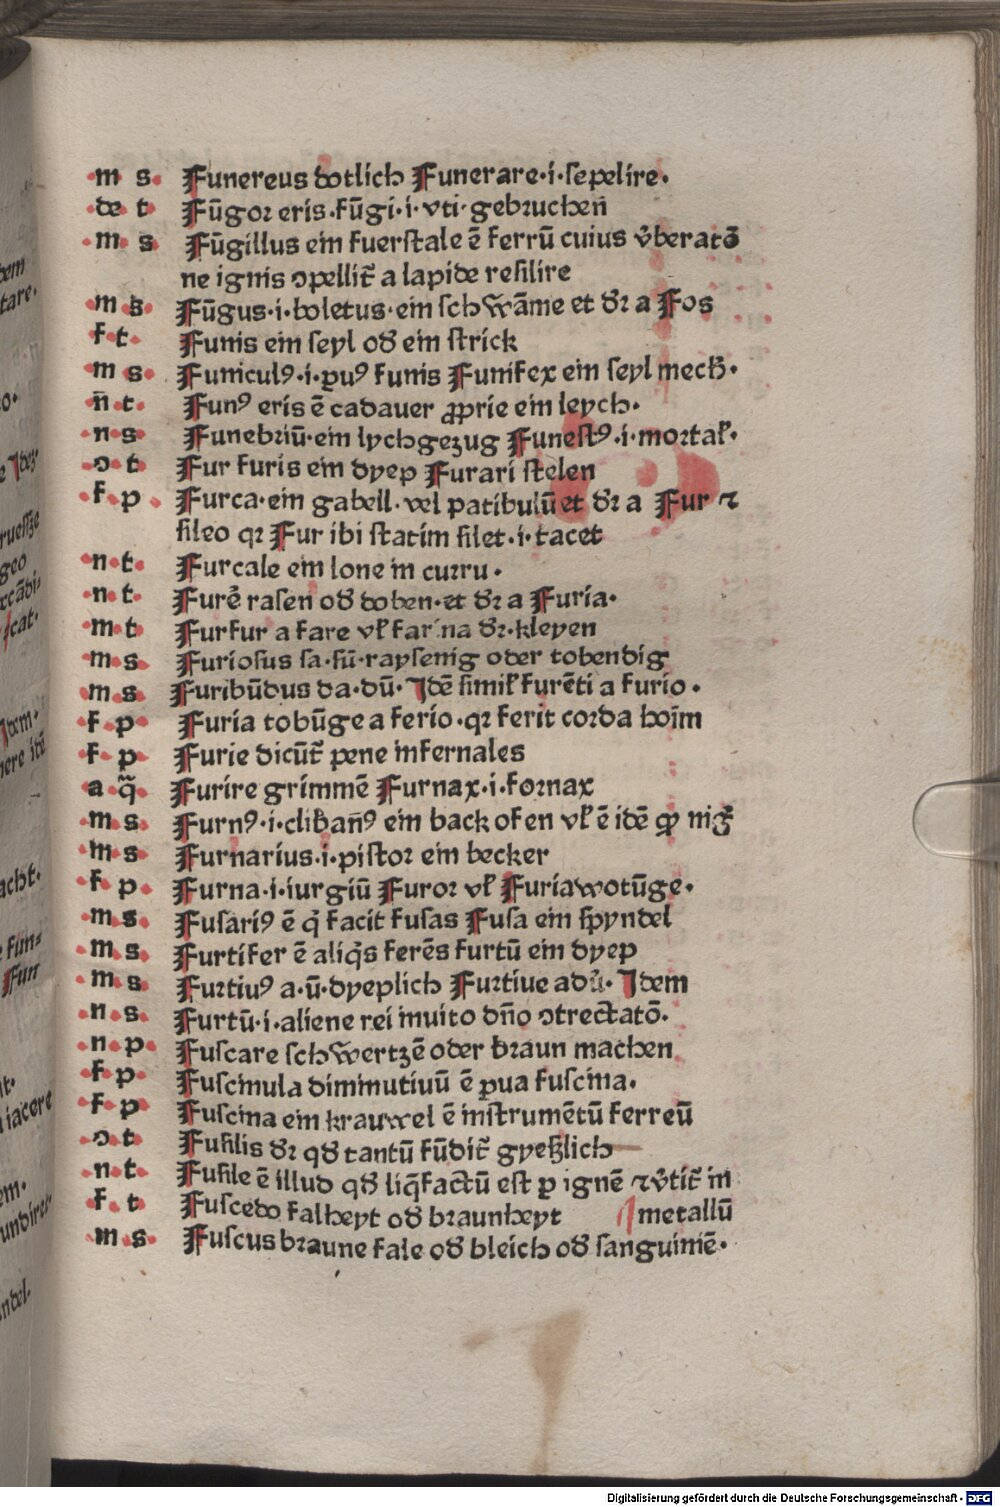 m s Funereus dotlich Funerare·i·sepelire·
de t Fūgor eris·fūgi·i·vti·gebruchen̄
m s Fūgillus ein fuerstale ē ferrū cuius v̓beratō
ne ignis ↄpellit̃ a lapide resilire
m s Fūgus·i·boletus·ein schwāme et dr̄ a Fos
f t Funis ein seyl od̄ ein strick
m s Funiculꝰ·i·ꝑuꝰ funis Funifex ein seyl mech̄·
n̄ t Funꝰ eris ē cadauer ꝓprie ein leych·
n s Funebriū·ein lychgezug Funestꝰ·i·mortal̕·
ↄ t Fur furis ein dyep Furari stelen
f p Furca·ein gabell·vel patibulū et dr̄ a Fur ⁊
sileo qr Fur ibi statim silet·i·tacet
n t Furcale ein lone in curru·
n t Furē rasen od̄ doben·et dr̄ a Furia·
m t Furfur a fare vl̕ farina dr̄·kleyen
m s Furiosus sa·sū·raysenig oder tobendig
m s Furibūdus da·dū·Idē simil̕ furēti a furio·
f p Furia tobūge a ferio·qr ferit corda hoīm
f p Furie dicūt̃ pene infernales
a q̄ Furire grimmē Furnax·i·fornax
m s Furnꝰ·i·clibanꝰ ein backofen vl̕ ē idē qď nigr̄
m s Furnarius·i·pistor ein becker
f p Furna·i·iurgiū Furor vl̕ Furia wotūge·
m s Fusariꝰ ē q̇ facit fusas Fusa ein spyndel
m s Furtifer ē aliq̇s ferēs furtū ein dyep
m s Furtiuꝰ a·ū·dyeplich Furtiue adū·Idem
n s Furtū·i·aliene rei inuito dn̄o ↄtrectatō·
n p Fuscare schwertzē oder braun machen
f p Fuscinula diminutiuū ē ꝑua fuscina·
f p Fuscina ein krauwel ē instrumētū ferreū
ↄ t Fusilis dr̄ qd̄ tantū fūdit̃ gyeßlich
n t Fusile ē illud qd̄ liq̄factū est ꝑ ignē ⁊ v̓tit̃ in
f t Fuscedo falheyt od̄ braunheyt metallū
m s Fuscus braune fale od̄ bleich od̄ sanguinē·
Digitalisierung gefördert durch die Deutsche Forschungsgemeinschaft - DFG